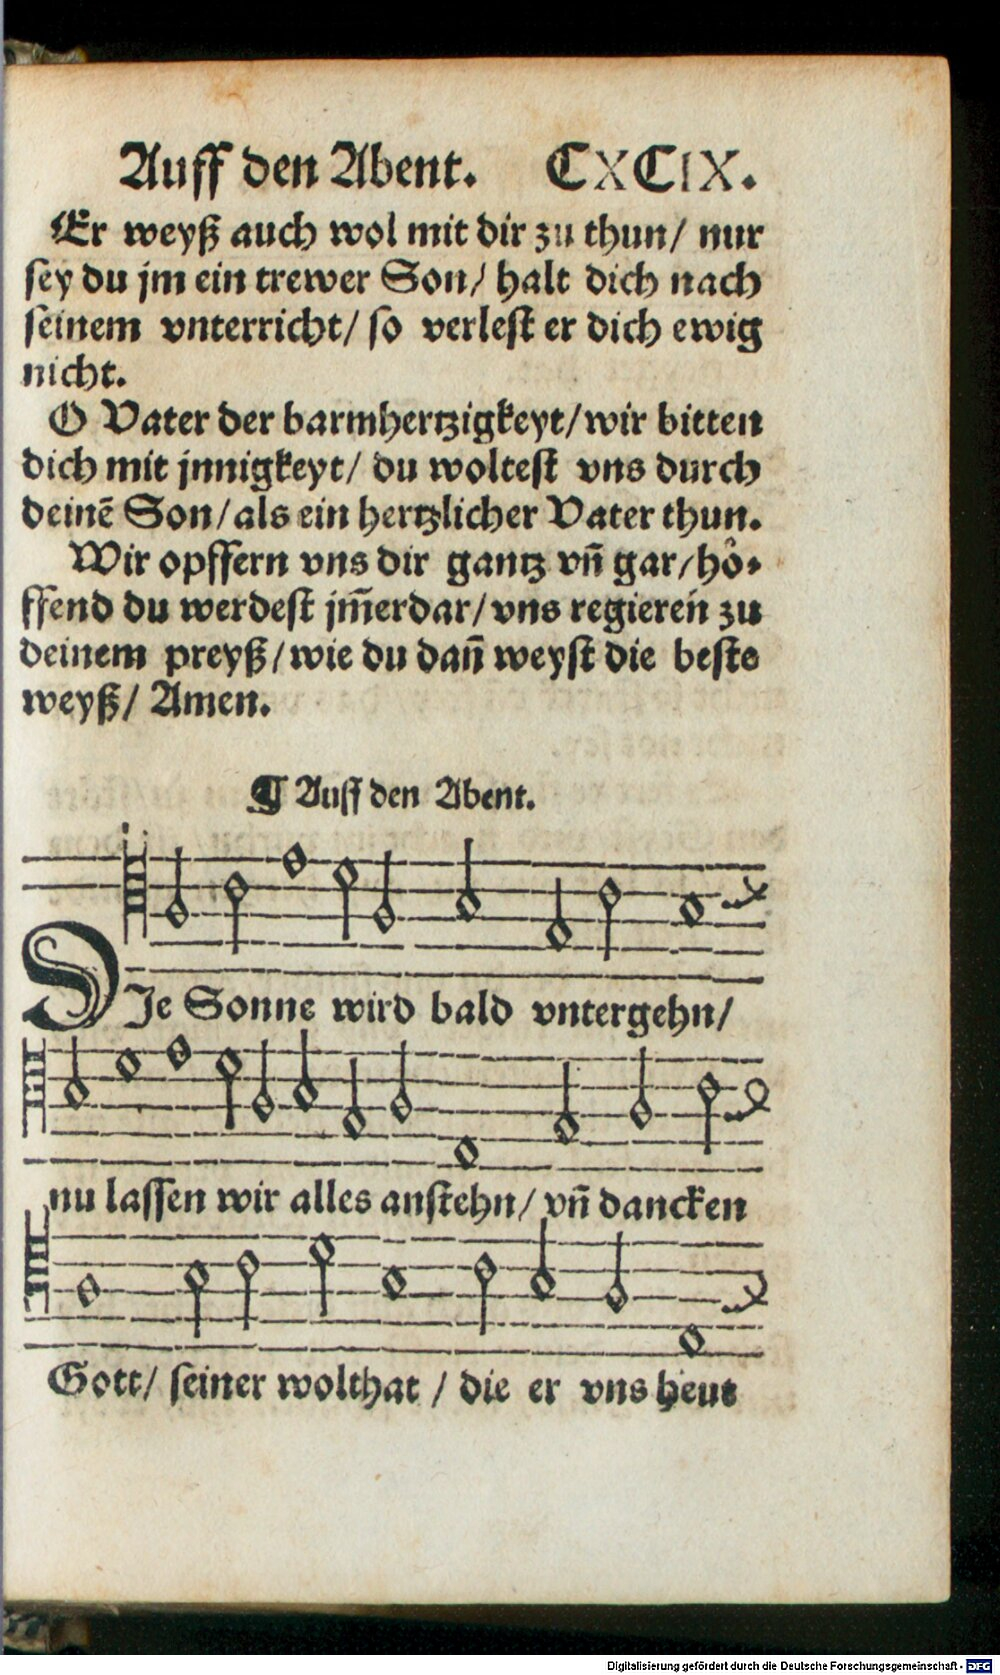 Auff den Abent. CXCIX.
Er weyß auch wol mit dir zu thun/ nur
sey du jm ein trewer Son/ halt dich nach
seinem vnterricht/ so verlest er dich ewig
nicht.
O Vater der barmhertzigkeyt/wir bitten
dich mit jnnigkeyt/ du woltest vns durch
deinē Son/als ein hertzlicher Vater thun.
Wir opffern vns dir gantz vñ gar/hoͤ-
ffend du werdest jm̄erdar/vns regieren zu
deinem preyß/wie du dañ weyst die beste
weyß/ Amen.
¶ Auff den Abent.
DIe Sonne wird bald vntergehn/
nu lassen wir alles anstehn/ vñ dancken
Gott/ seiner wolthat / die er vns heut
Digitalisierung gefördert durch die Deutsche Forschungsgemeinschaft - DFG